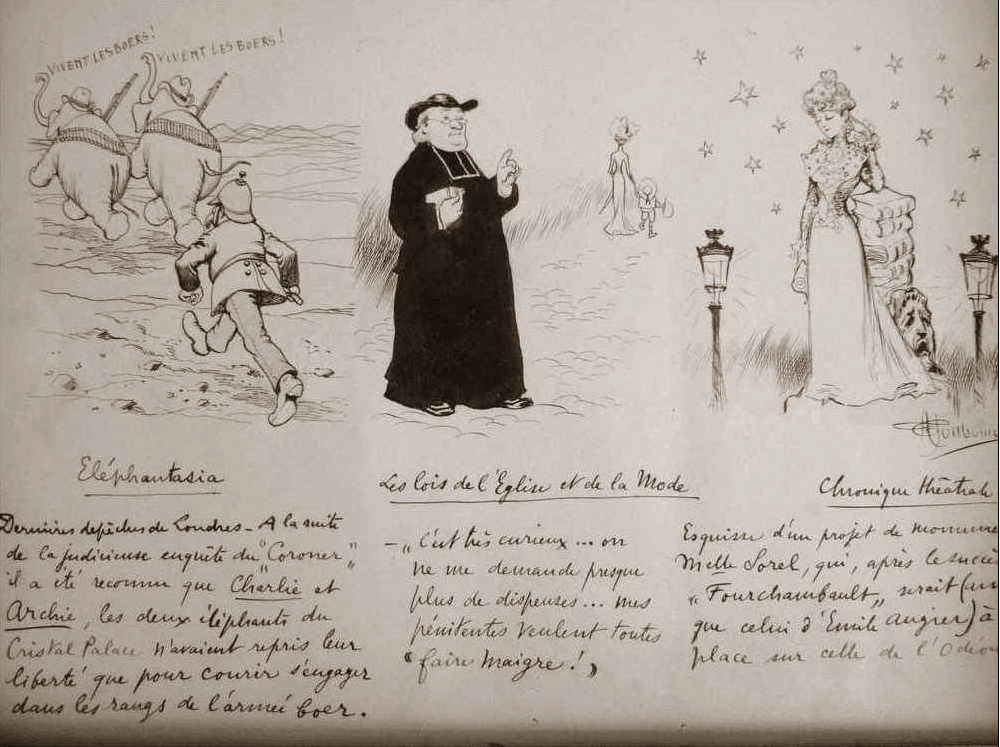 VIVENT LES BOERS!
VIVENT LES BOERS!
Eléphantasia
Dernières dépêches de Londres - A la suite
de la judicieuse enquête du "Coroner"
il a été reconnu que Charlie et
Archie, les deux éléphants du
Cristal Palace n'avaient repris leur
liberté que pour courir s'engager
dans les rangs de l'armée boer.
Les lois de l'Eglise et de la Mode
- „ C'est très curieux... on
ne me demande presque
plus de dispenses... mes
pénitentes veulent toutes
"faire maigre!"
Chronique théatrale
Esquisse d'un projet de monume
Melle Sorel, qui, après le succès
„ Fourchambault „ serait (au
que celui d'Emile Augier) à
place sur celle de l'Odéon